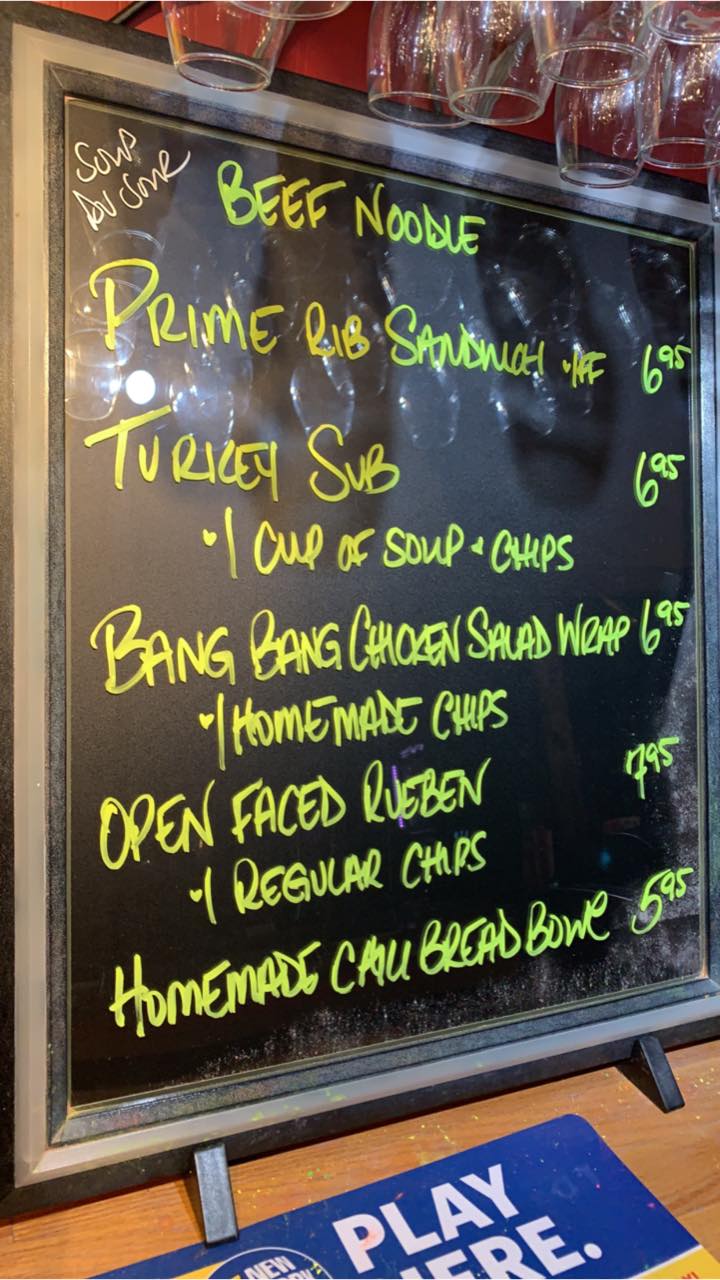 SOUP
DU JOUR
BEEF NOODLE
PRIME RIB SANDWICH w/FF 6.95
TURKEY SUB 6.95
w/ CUP OF SOUP & CHIPS
BANG BANG CHICKEN SALAD WRAP 6.95
w/ HOMEMADE CHIPS
OPEN FACED RUEBEN 7.95
w/ REGULAR CHIPS
HOMEMADE CHILI BREAD BOWL 5.95
PLAY
HERE.
NEW